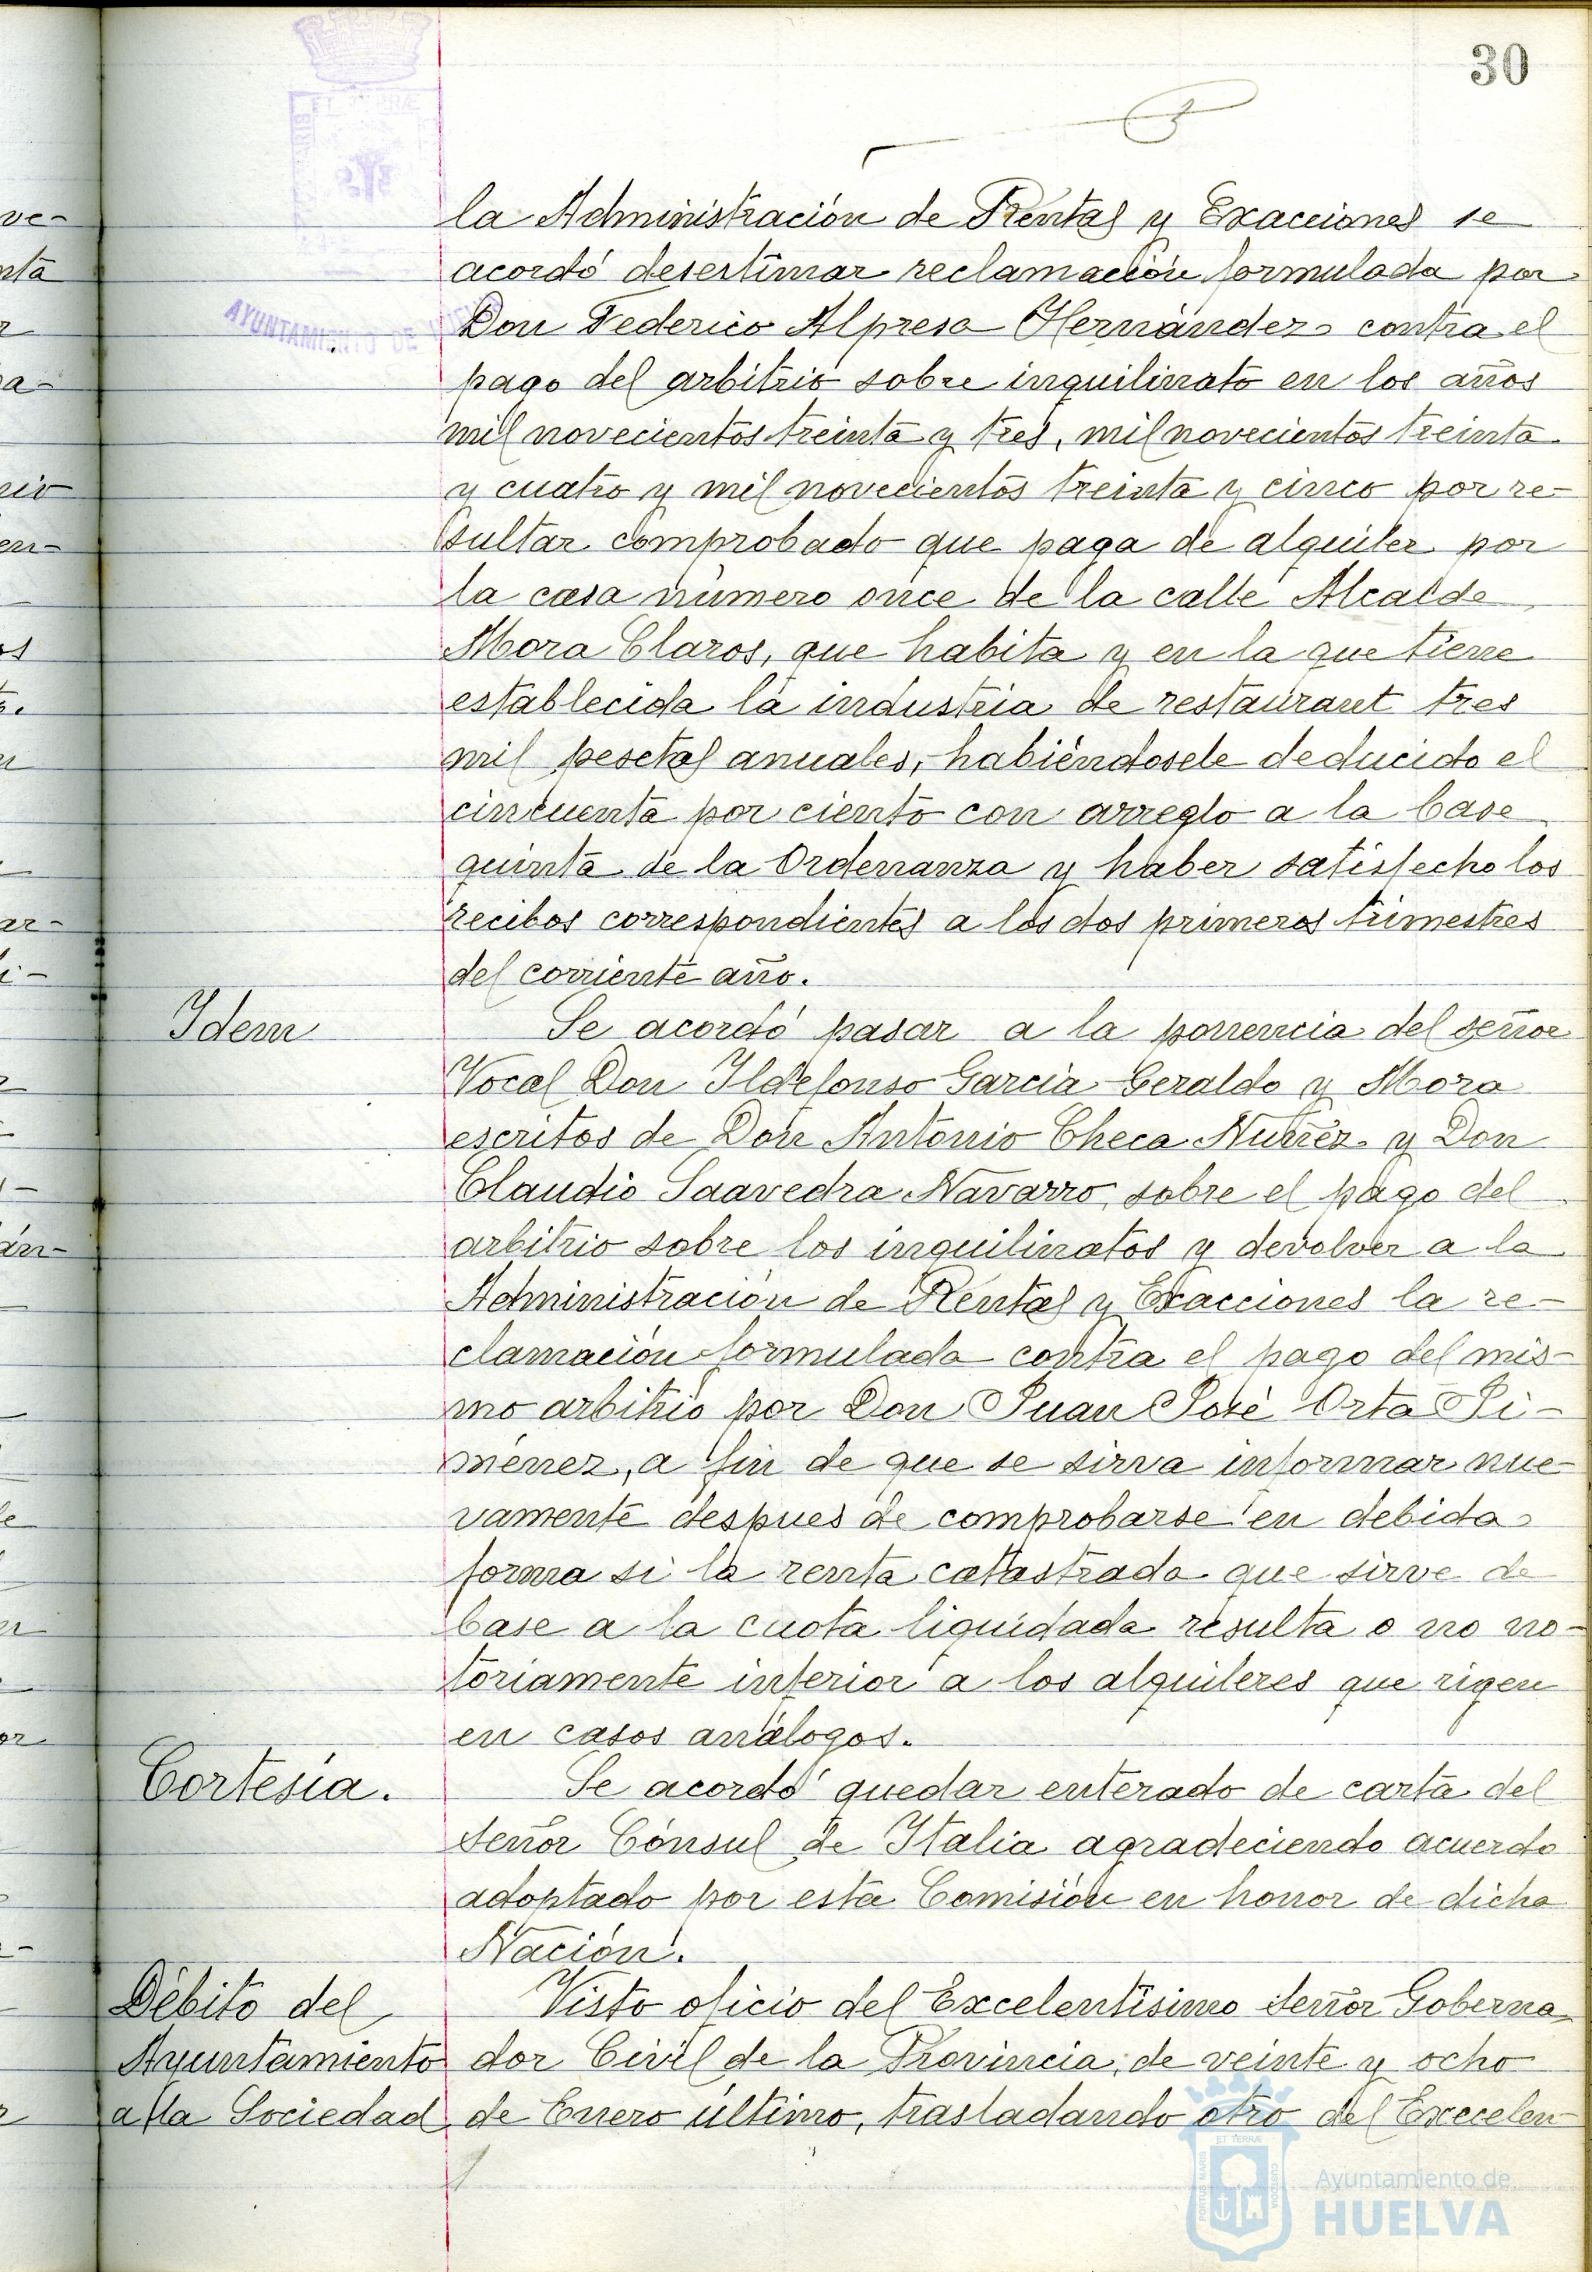 30
la Administración de Rentas y Exacciones se
acordó desestimar reclamación formulada por
Don Federico Alpresa Hernández contra el
pago del arbitrio sobre inquilinato en los años
mil novecientos treinta y tres, mil novecientos treinta
y cuatro y mil novecientos treinta y cinco por re-
sultar comprobado que paga de alquiler por
la casa número once de la calle Alcalde
Mora Claros, que habita y en la que tiene
establecida la industria de restaurant tres
mil pesetas anuales, habiéndosele deducido el
cincuenta por ciento con arreglo a la base
quinta de la Ordenanza y haber satisfecho los
recibos correspondientes a los dos primeros trimestres
del corriente año.
Idem
Se acordó pasar a la ponencia del señor
Vocal Don Ildefonso Garcia Geraldo y Mora
escritos de Don Antonio Checa Nuñez y Don
Claudio Saavedra Navarro, sobre el pago del
arbitrio sobre los inquilinatos y devolver a la
Administración de Rentas y Exacciones la re-
clamación formulada contra el pago del mis-
mo arbitrio por Don Juan José Orta Ji-
ménez, a fin de que se sirva informar nue-
vamente despues de comprobarse en debida
forma si la renta catastrada que sirve de
base a la cuota liquidada resulta o no no-
toriamente inferior a los alquileres que rigen
en casos análogos.
Cortesía.
Se acordó quedar enterado de carta del
señor Cónsul de Italia agradeciendo acuerdo
adoptado por esta Comisión en honor de dicha
Nación.
Débito del
Ayuntamiento
a la Sociedad
Visto oficio del Excelentísimo Señor Goberna-
dor Civil de la Provincia, de veinte y ocho
de Enero último, trasladando otro del Excelen-
AYUNTAMIENTO DE HUELVA
ET TERRÆ
PORTUS MARIS
CUSTODIA
Ayuntamiento de
HUELVA